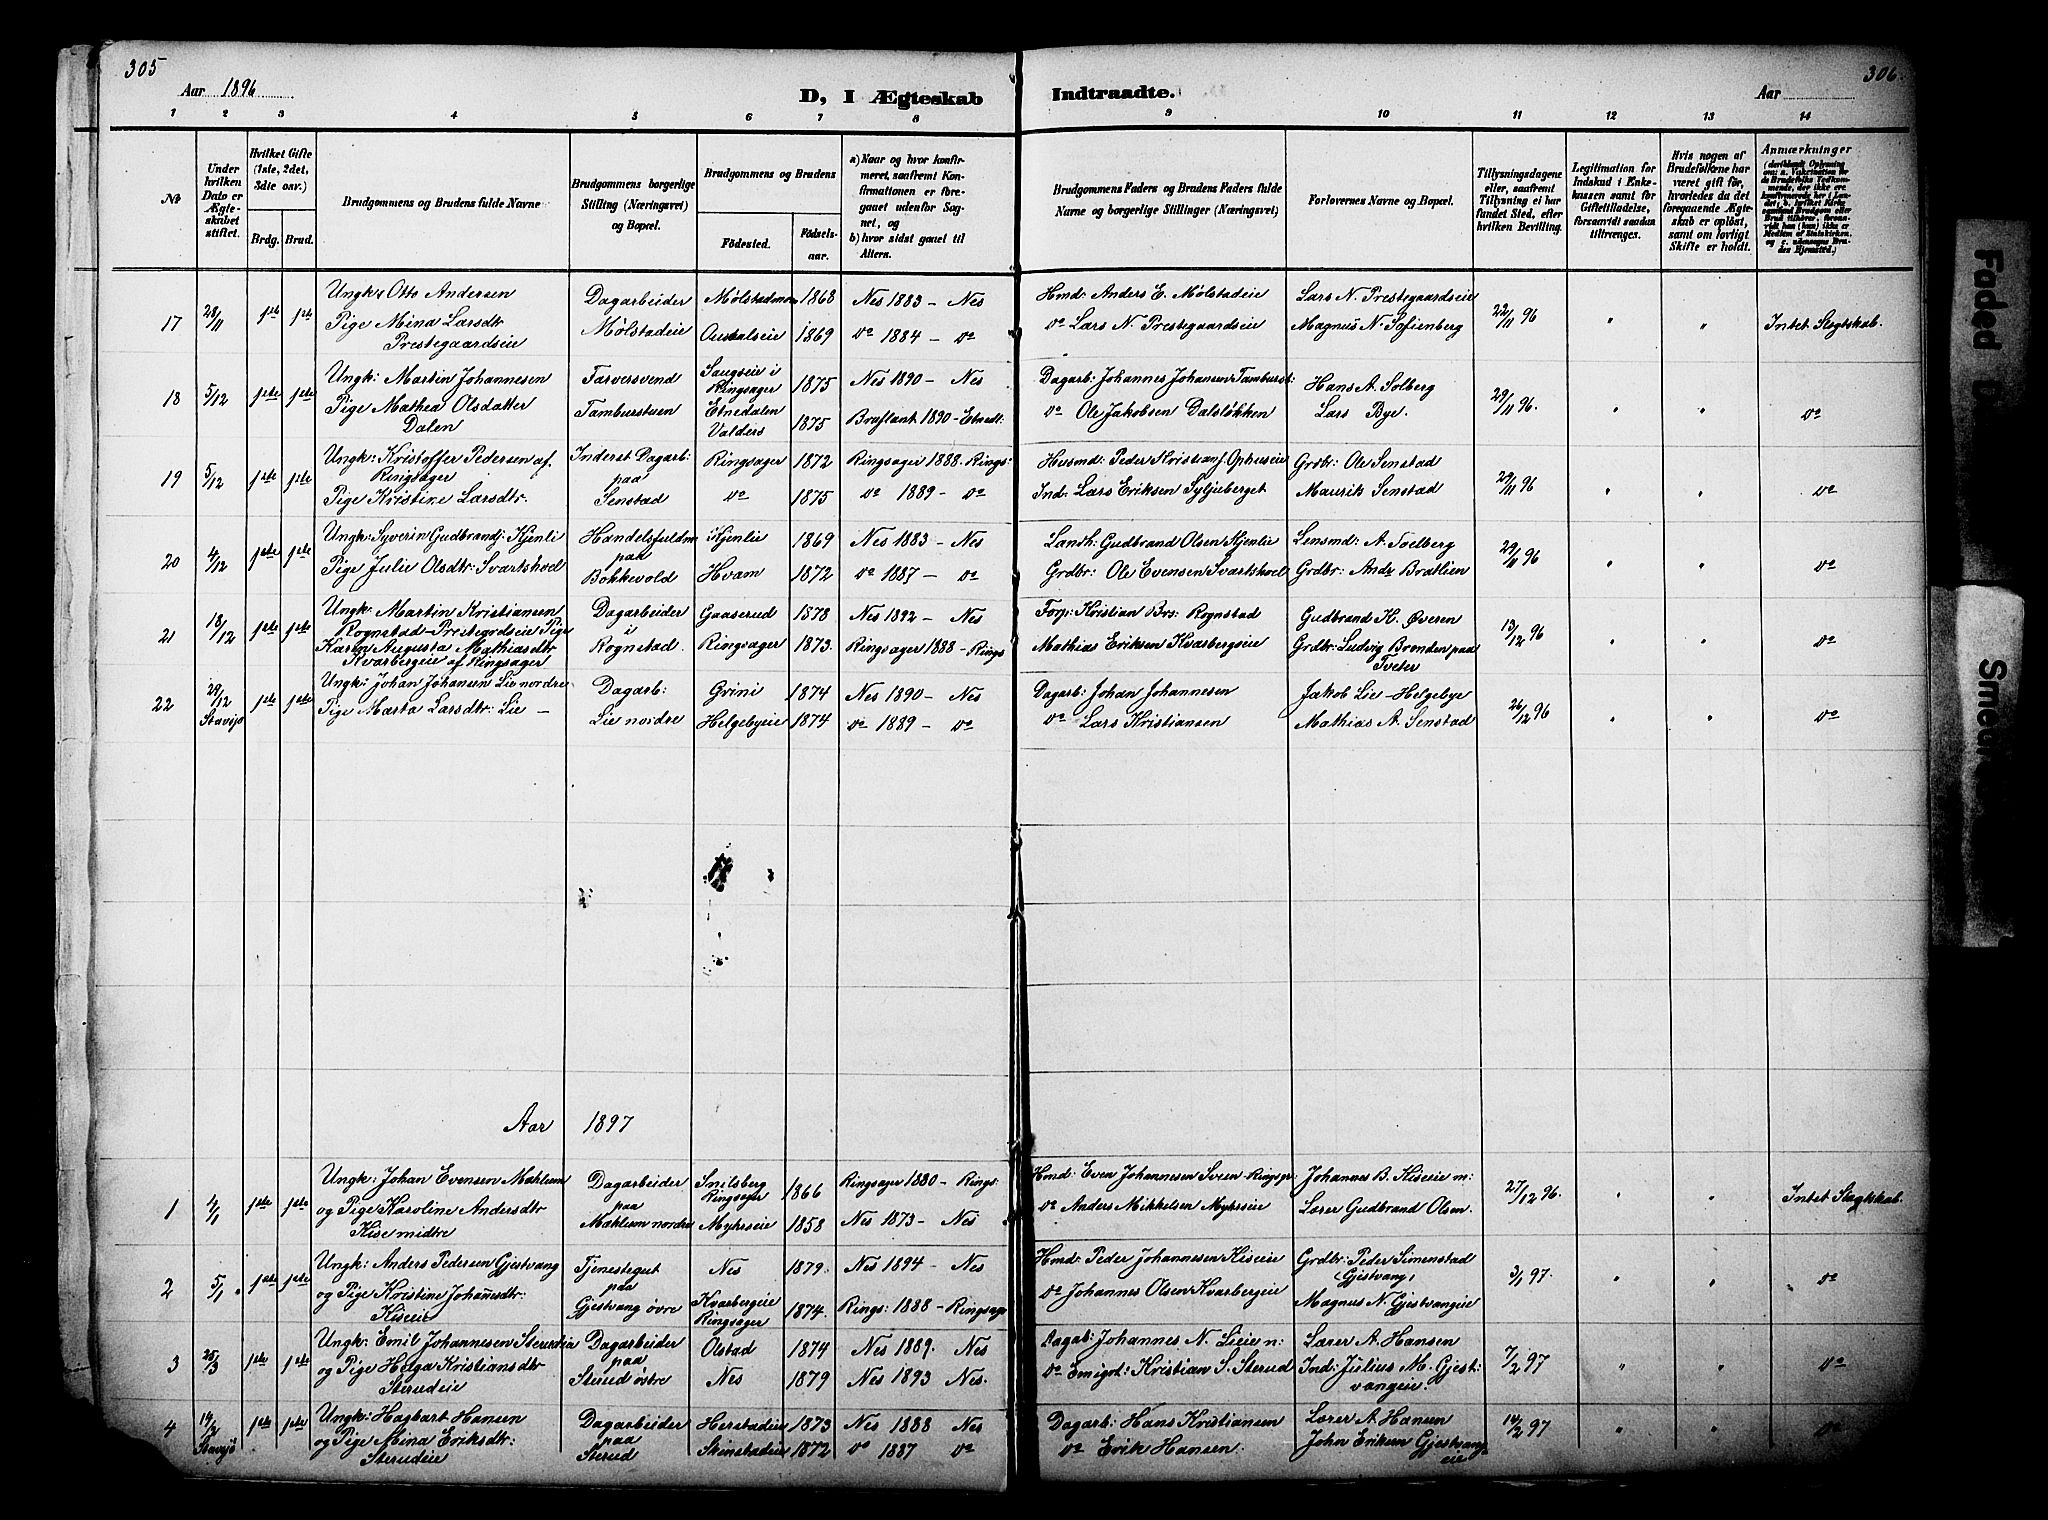 305
306
Aar 1896
D, I Ægteskab Indtraadte.
Aar
1 2 3 4 5 6 7 8 9 10 11 12 13 14
№
Under hvilken Dato er Ægteskabet stiftet.
Hvilket Gifte (1ste, 2det, 3die osv.)
Brdg. Brud.
Brudgommens og Brudens fulde Navne
Brudgommens borgerlige Stilling (Næringsvei) og Bopæl.
Brudgommens og Brudens
Fødested. Fødselsaar.
a) Naar og hvor konfirmeret, saafremt Konfirmationen er foregaaet udenfor Sognet, og
b) hvor sidst gaaet til Alters.
Brudgommens Faders og Brudens Faders fulde Navne og borgerlige Stillinger (Næringsvei)
Forlovernes Navne og Bopæl.
Tillysningsdagene eller, saafremt Tillysning ei har fundet Sted, efter hvilken Bevilling.
Legitimation for Indskud i Enkekassen samt for Giftetilladelse, forsaavidt saadan tiltrænges.
Hvis nogen af Brudefolkene har været gift før, hvorledes da det foregaaende Ægteskab er opløst, samt om lovligt Skifte er holdt.
Anmærkninger
17 28/11 1ste 1ste Ungk: Otto Andersen Dagarbeider 1868 Nes 1883 – Nes Hmd: Anders E. Mølstadeie Lars N. Prestegaardseie 22/11 96 " " Intet Slegtskab.
Pige Mina Larsdtr Mølstadeie 1869 do 1884 – do do Lars N. Prestegaardseie Magnus N. Sofienberg
Prestegaardseie
18 5/12 1ste 1ste Ungk: Martin Johannesen Farversvend Saugseie i Ringsager 1875 Nes 1890 – Nes Dagarb: Johannes Johansen Tamburst: Hans A. Solberg 29/11 96. " " do
Pige Mathea Olsdatter Tamburstuen Etnedalen Valders 1875 1890 – Etnedl: do Ole Jakobsen Dalsløkken Lars Bye.
Dalen
19 5/12 1ste 1ste Ungk: Kristoffer Pedersen af Inderst Dagarb: Ringsager 1872 Ringsager 1888 – Rings: Husmd: Peder Kristians. Ophuseie Grdbr: Ole Senstad 29/11 96 " " do
Ringsager paa
Pige Kristine Larsdtr. Senstad do 1875 do 1889 – do Ind: Lars Eriksen Syljuberget Maurits Senstad
20 4/12 1ste 1ste Ungk: Syverin Gudbrandj: Kjenli Handelsfuldm Kjenlie 1869 Nes 1883 – Nes Landh: Gudbrand Olsen Kjenlie Lensmd: A. Tvelberg 29/11 96 " " do
paa
Pige Julie Olsdtr: Svartshod Bokkevold Hvam 1872 do 1887 – do Grdbr: Ole Evensen Svartshod Grdbr: Andr Bratlien
21 18/12 1ste 1ste Ungk: Martin Kristiansen Dagarbeider Gaaserud 1878 Nes 1892 – Nes Forp: Kristian Brs: Rognstad Gudbrand H. Øveren 13/12 96 " " do
Rognstad–Prestegrdseie Pige i
Karen Augusta Mathiasdtr Rognstad. Ringsager 1873. Ringsager 1888 – Rings Mathias Eriksen Kvarbergeie Grdbr: Ludvig Brenden paa
Kvarbergeie af Ringsager Tveter
22 29/12 Stavsjø 1ste 1ste Ungk: Johan Johansen Lie nordre Dagarb: Grini 1874 Nes 1890 – Nes Dagarb: Johan Johannesen Jakob Lie – Helgebye 26/12 96 " " do
Pige Marta Larsdtr: Lie – Lie nordre Helgebyeie 1874 do 1889 – do do Lars Kristiansen Mathias A. Senstad
Aar 1897
1 4/1 1ste 1ste Ungk: Johan Evensen Mæhlum Dagarbeider Smilsberg Ringsager 1866 Ringsager 1880 – Rings: Hmd: Even Johannesen Sveen – Ringsgr: Johannes B. Kiseie m: 27/12 96. " " Intet Slegtskab.
og Pige Karoline Andersdtr paa
Kise midtre Mæhlum nordre Myhrseie 1858 Nes 1873 – Nes do Anders Mikkelsen Myhrseie Lærer Gudbrand Olsen.
2 5/1 1ste 1ste Ungk: Anders Pedersen Gjestvang Tjenestegut Nes 1879. Nes 1894 – Nes Hmd: Peder Johannesen Kiseie Grdbr: Peder Simenstad 3/1 97. " " do
og Pige Kristine Johansdtr: paa (Gjestvang)
Kiseie Gjestvang øvre Kvarbergeie Ringsager 1874. Rings: 1888 – Ringsager do Johannes Olsen Kvarbergeie Magnus N. Gjestvangeie
3 25/3 1ste 1ste Ungk: Emil Johannesen Sterudeie Dagarbeider Olstad 1874 Nes 1889. Nes Dagab: Johannes N. Lieie n: Lærer A. Hansen 7/2 97 " " do
og Pige Helga Kristiansdtr paa
Sterudeie Sterud østre Nes 1879 Nes 1893 Nes. do Emigrt: Kristian S. Sterud Ind: Julius M. Gjest:
vangeie:
4 19/2 Stavsjø 1ste 1ste Ungk: Hagbart Hansen Dagarbeider Herstadeie 1873 Nes 1888 Nes Dagarb: Hans Kristiansen Lærer A. Hansen 14/2 97 " " do
og Pige Mina Eriksdtr: paa
Sterudeie Sterud Skinstadeie 1872 do 1887 do do Erik Hansen: John Eriksen Gjestvang
eie